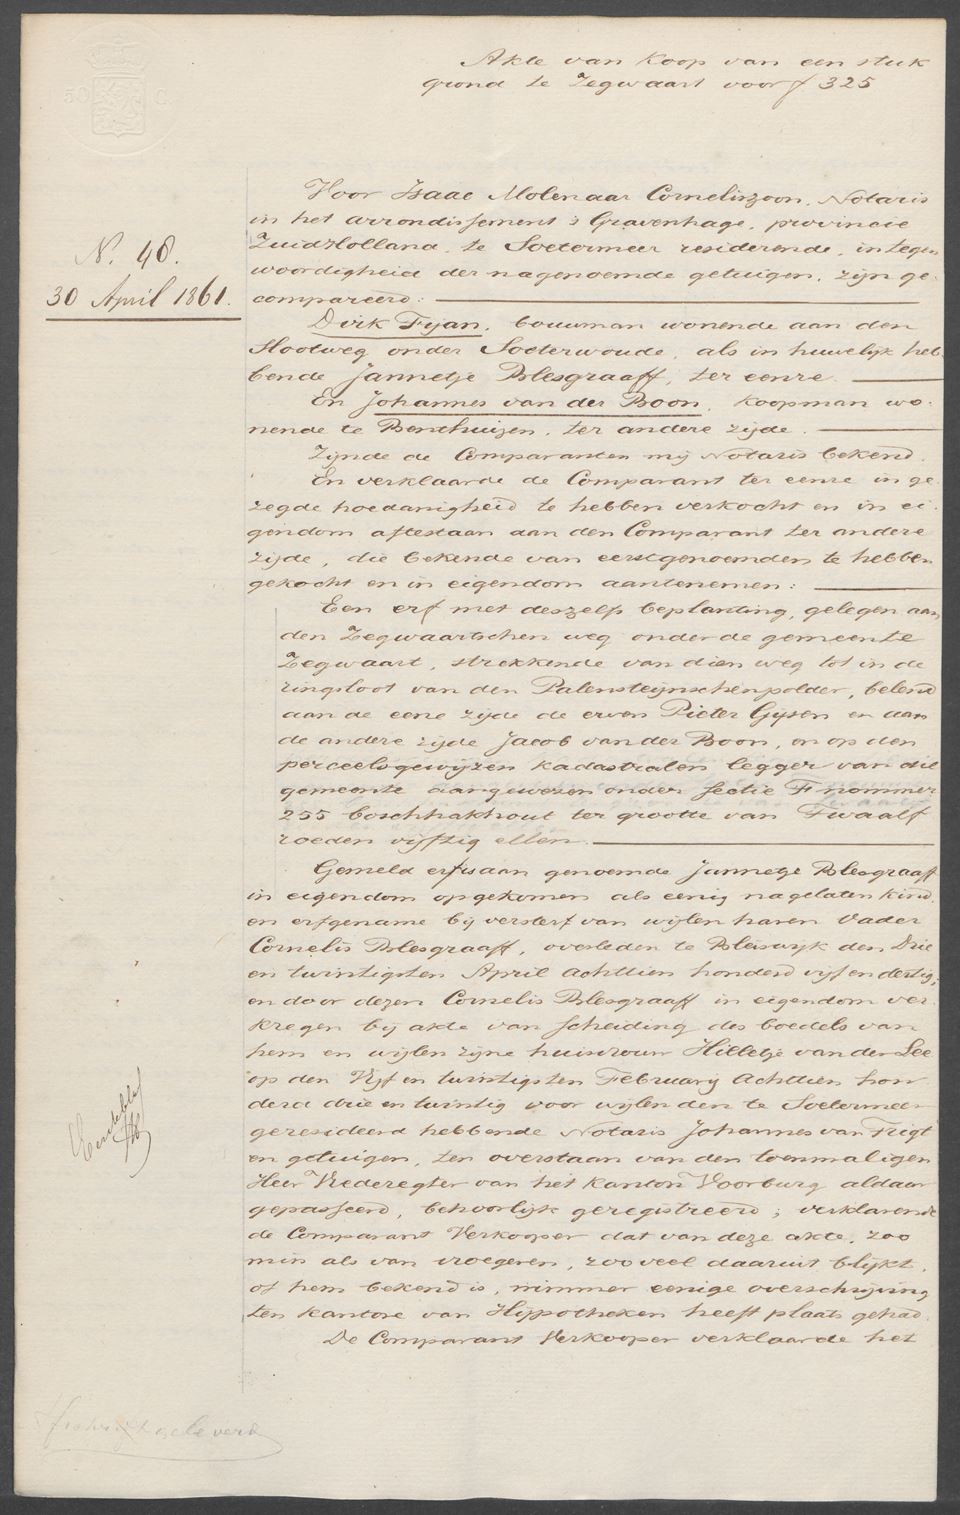 Akte van Koop van een stuk
grond te Zegwaart voor f 325
50 C
N. 48.
30 April 1861.
Voor Isaac Molenaar Corneliszoon, Notaris
in het arrondissement 's Gravenhage, provincie
Zuidholland, te Soetermeer residerende, in tegen
woordigheid der nagenoemde getuigen, zijn ge-
compareerd:
Dirk Fijan, bouwman wonende aan den
Hootweg onder Soeterwoude, als in huwelijk heb-
bende Jannetje Blesgraaff, ter eenre
En Johannes van der Boon, koopman wo-
nende te Benthuizen, ter andere zijde.
Zijnde de Comparanten mij Notaris bekend.
En verklaarde de Comparant ter eenre in ge-
zegde hoedanigheid te hebben verkocht en in ei-
gendom aftestaan aan den Comparant ter andere
zijde, die bekende van eerstgenoemden te hebben
gekocht en in eigendom aantenemen:
Een erf met deszelfs beplanting, gelegen aan
den Zegwaartschen weg onder de gemeente
Zegwaart, strekkende van dien weg tot in de
ringsloot van den Palensteijnschenpolder, belend
aan de eene zijde de erven Pieter Gijsen en aan
de andere zijde Jacob van der Boon, en op den
perceelsgewijzen kadastralen legger van die
gemeente aangewezen onder sectie F nommer
255 boschhakhout ter grootte van Twaalf
roeden vijftig ellen.
Gemeld erf is aan genoemde Jannetje Blesgraaff
in eigendom opgekomen als eenig nagelaten kind
en erfgename bij versterf van wijlen haren Vader
Cornelis Blesgraaff, overleden te Bleiswijk den Drie
en twintigsten April Achttien honderd vijf en dertig;
en door dezen Cornelis Blesgraaff in eigendom ver-
kregen bij akte van scheiding des boedels van
hem en wijlen zijne huisvrouw Hilletje van der Lee
op den Vijf en twintigsten February Achttien hon
derd drie en twintig voor wijlen den te Soetermeer
geresideerd hebbende Notaris Johannes van Trigt
en getuigen, ten overstaan van den toenmaligen
Heer Vrederegter van het kanton Voorburg aldaar
gepasseerd, behoorlijk geregistreerd; verklarende
de Comparant Verkooper dat van deze akte, zoo
min als van vroegeren, zoo veel daaruit blijkt,
of hem bekend is, nimmer eenige overschrijving
ten kantore van Hijpotheken heeft plaats gehad.
De Comparant Verkooper verklaarde het
geleverd